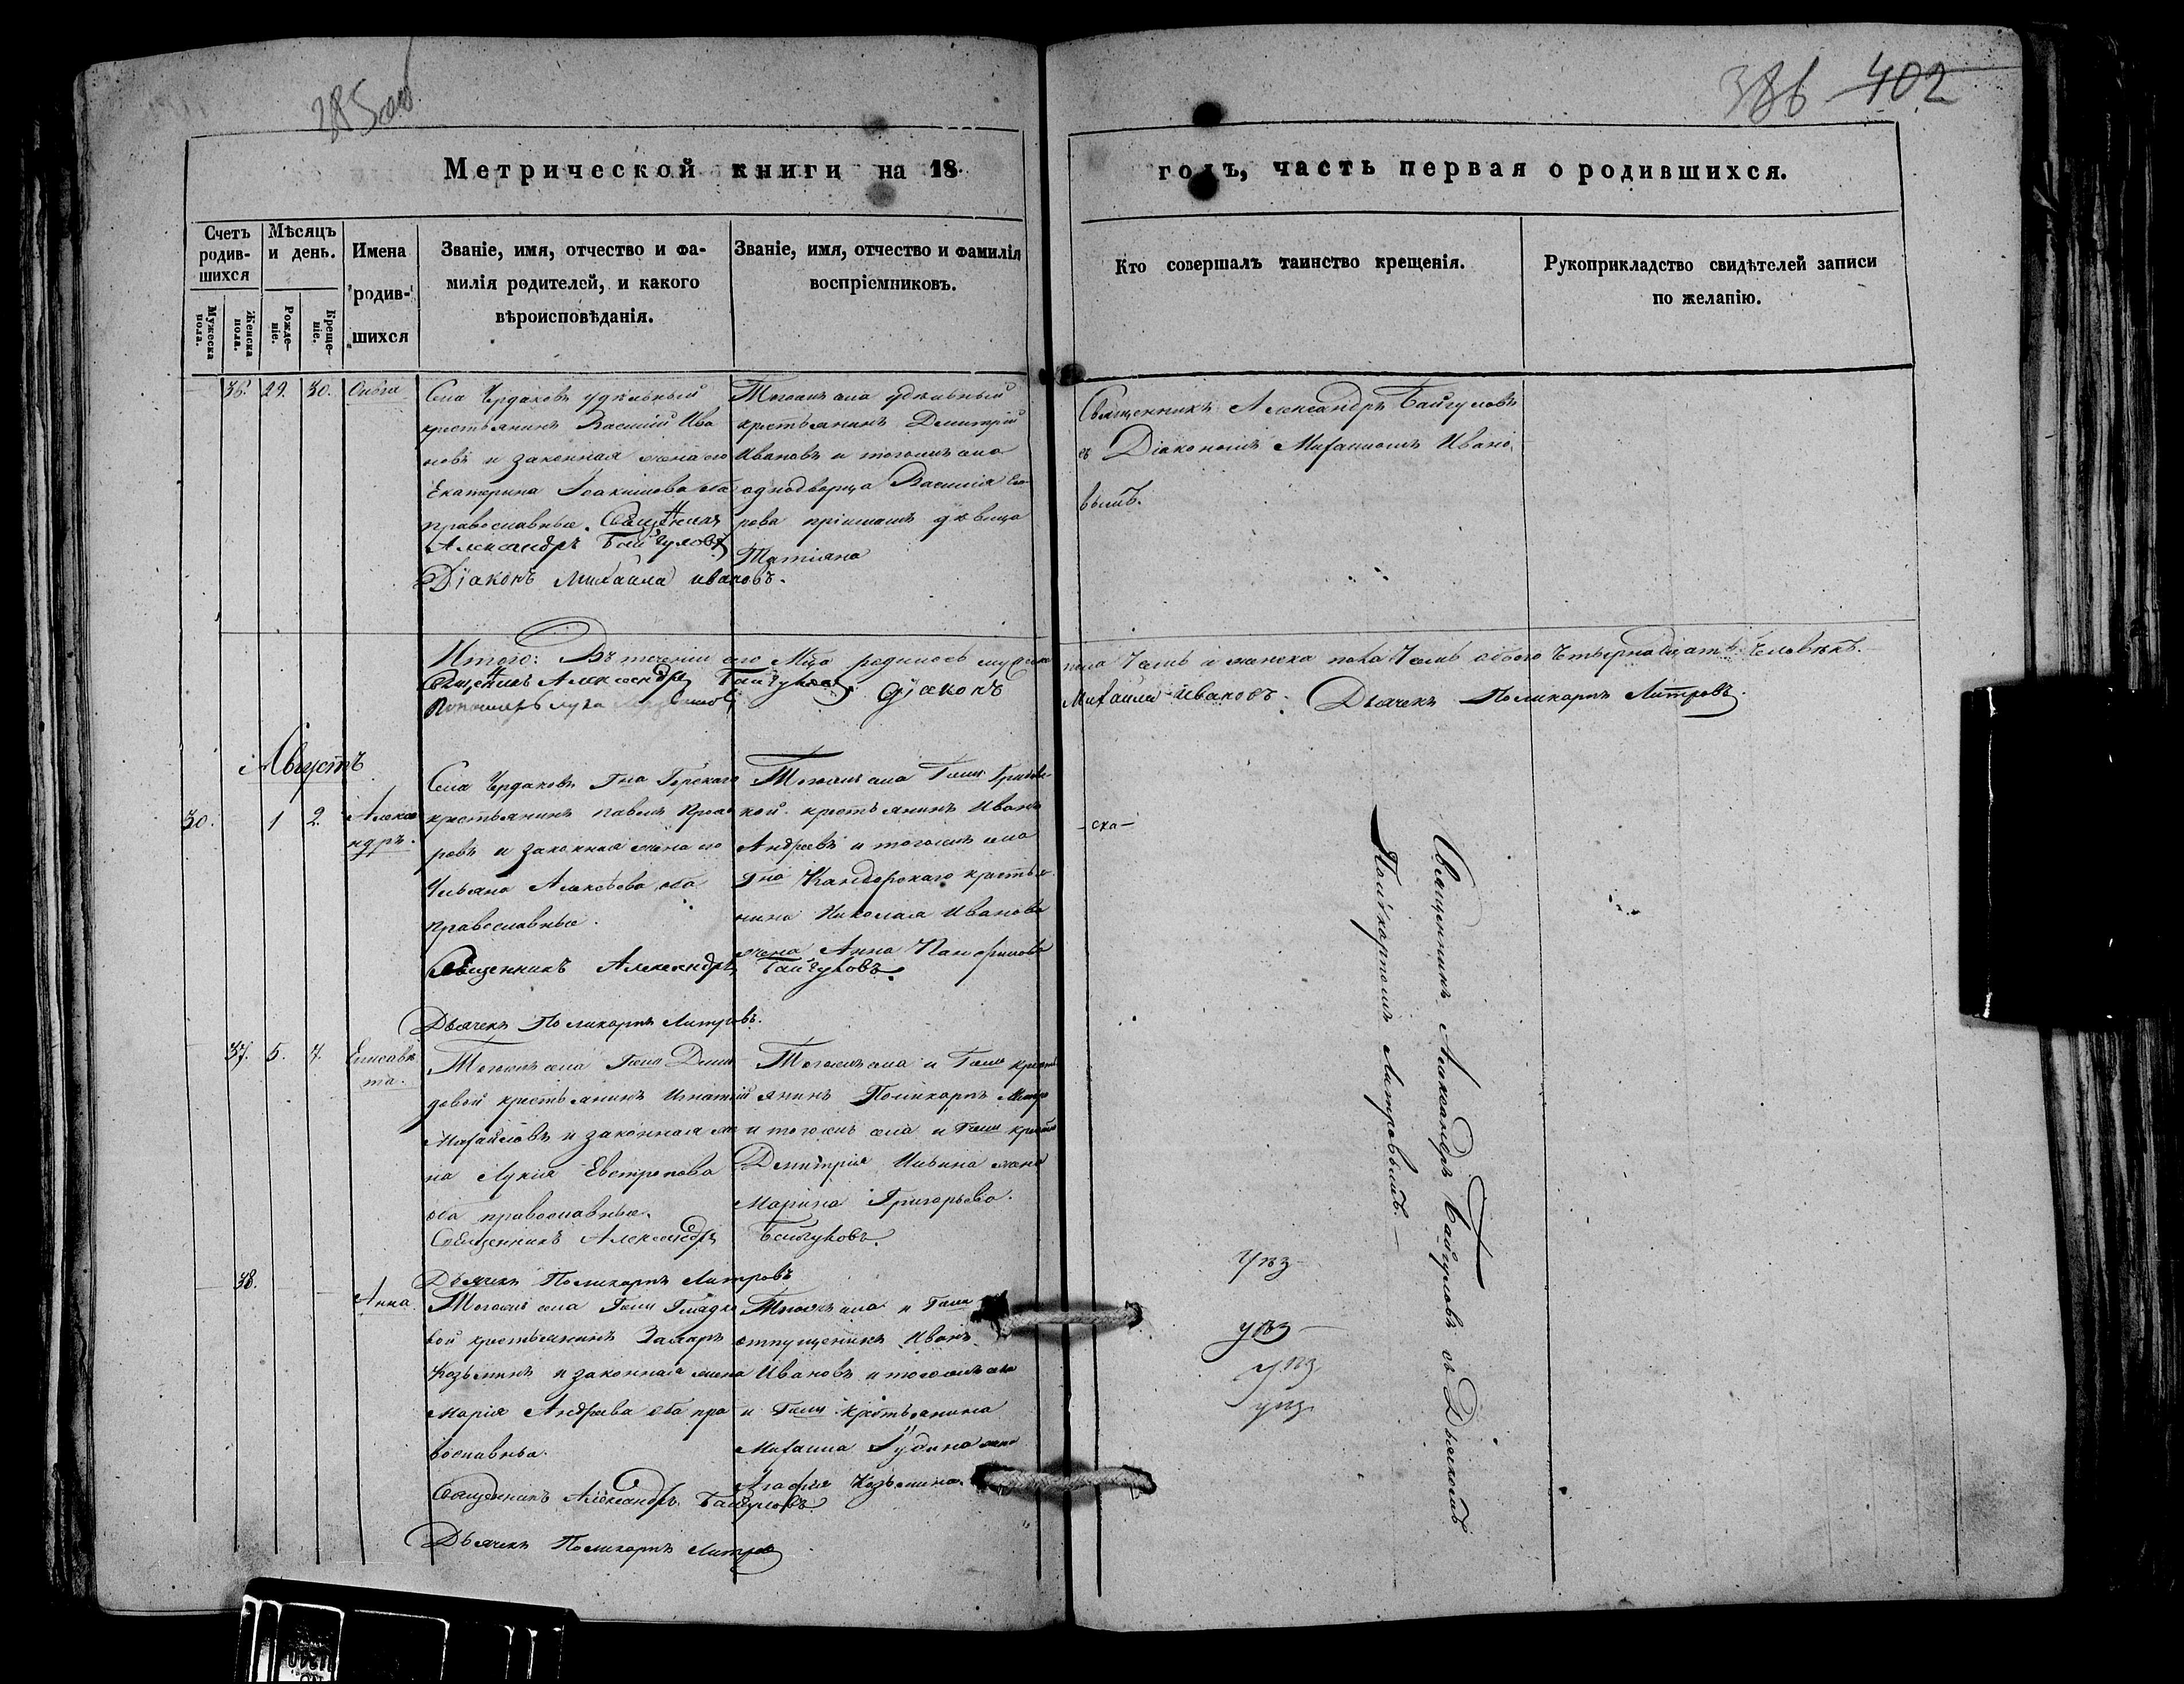 386 402
Метрической книги на 18
годъ, часть первая о родившихся.
Счетъ родив-
шихся
Мужеска пола.
Женска пола.
Мѣсяцъ и день.
Рожде-
ніе.
Креще-
ніе.
Имена
родив-
шихся
Званіе, имя, отчество и фа-
милія родителей, и какого
вѣроисповѣданія.
Званіе, имя, отчество и фамилія
воспріемниковъ.
Кто совершалъ таинство крещенія.
Рукоприкладство свидѣтелей записи
по желанію.
36. 29. 30. Ольга
Села Чердаковъ удѣльный
крестьянинъ Василій Ива
новъ и законная жена его
Екатерина Іоакимова оба
православные. Священникъ
Александръ Байгуловъ
Діаконъ Михаила ивановъ.
Тогожъ села удѣльный
крестьянинъ Димитрій
Ивановъ и тогожъ села
однодворца Василія
дѣвица
Татіана
Священникъ Александръ Байгуловъ
съ Діакономъ Михаиломъ Ивано
вымъ.
Итого: Въ теченіи сего Мѣца родилось мужска
пола 7емь а женска пола 7емь обоего Четырнадцать Человѣкъ.
Священникъ Александръ Байгуловъ. діаконъ
Михаила ивановъ. Дьячекъ Поликарпъ Литровъ.
Августъ
30. 1 2. Алекса
ндръ.
Села Чердаковъ Гна
крестьянинъ Павелъ
ровъ и законная жена его
Ульяна оба
православные.
Священникъ Александръ Байгуловъ.
Дьячекъ Поликарпъ Литровъ.
Тогожъ села
кой крестьянинъ Иванъ
Андреевъ и тогожъ села
Гна крестья
нина Николая Иванова
жена Анна
-ска-
37. 5. 7. Елисаве
та.
Тогожъ села Гжи Деми
довой крестьянинъ Игнатій
Михайловъ и законная же
на Лукія Евстропова
оба православные.
Священникъ Александръ Байгуловъ.
Дьячекъ Поликарпъ Литровъ
Тогожъ села и Гжи кресть
янинъ Поликарпъ
и тогожъ села и Гжи
Димитрія Ильина жена
Марина Григорьева.
38. Анна
Тогожъ села Гжи Гладко
вой крестьянинъ Захаръ
Козьминъ и законная жена
Марія Андреева оба пра
вославные.
Священникъ Александръ Байгуловъ
Дьячекъ Поликарпъ Литровъ
Тогожъ села и Гжи
отпущеникъ Иванъ
Ивановъ и тогожъ села
и Гжи крестьянина
Михаила жена
Агафія Козьмина.
Священникъ Александръ Байгуловъ съ Дьячкомъ
Поликарпомъ Литровымъ.